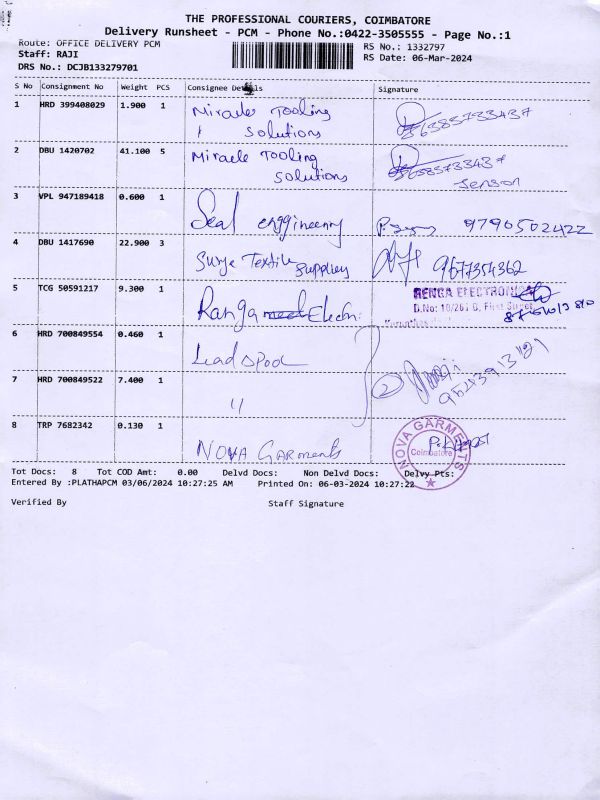 THE PROFESSIONAL COURIERS, COIMBATORE
Delivery Runsheet - PCM - Phone No.:0422-3505555 - Page No.:1
Route: OFFICE DELIVERY PCM
RS No.: 1332797
Staff: RAJI
RS Date: 06-Mar-2024
DRS No.: DCJB133279701
S No Consignment No Weight PCS Consignee Details Signature
1 HRD 399408029 1.900 1 Miracle Tooling
solutions
2 DBU 1420702 41.100 5 Miracle Tooling
solutions
Jenson
3 VPL 947189418 0.600 1 Seal enggineerry 9790502422
4 DBU 1417690 22.900 3 Surye Textile Supplies 9677354362
5 TCG 50591217 9.300 1 Ranga Electro.
RENGA ELECTRONICS
D.No: 10/261 D, First Street
6 HRD 700849554 0.460 1 Leadspoo
2
7 HRD 700849522 7.400 1 "
8 TRP 7682342 0.130 1 NOVA Garments
NOVA GARMENTS
Coimbatore
Tot Docs: 8 Tot COD Amt: 0.00 Delvd Docs: Non Delvd Docs: Delvy Pts:
Entered By :PLATHAPCM 03/06/2024 10:27:25 AM Printed On: 06-03-2024 10:27:22
Verified By Staff Signature